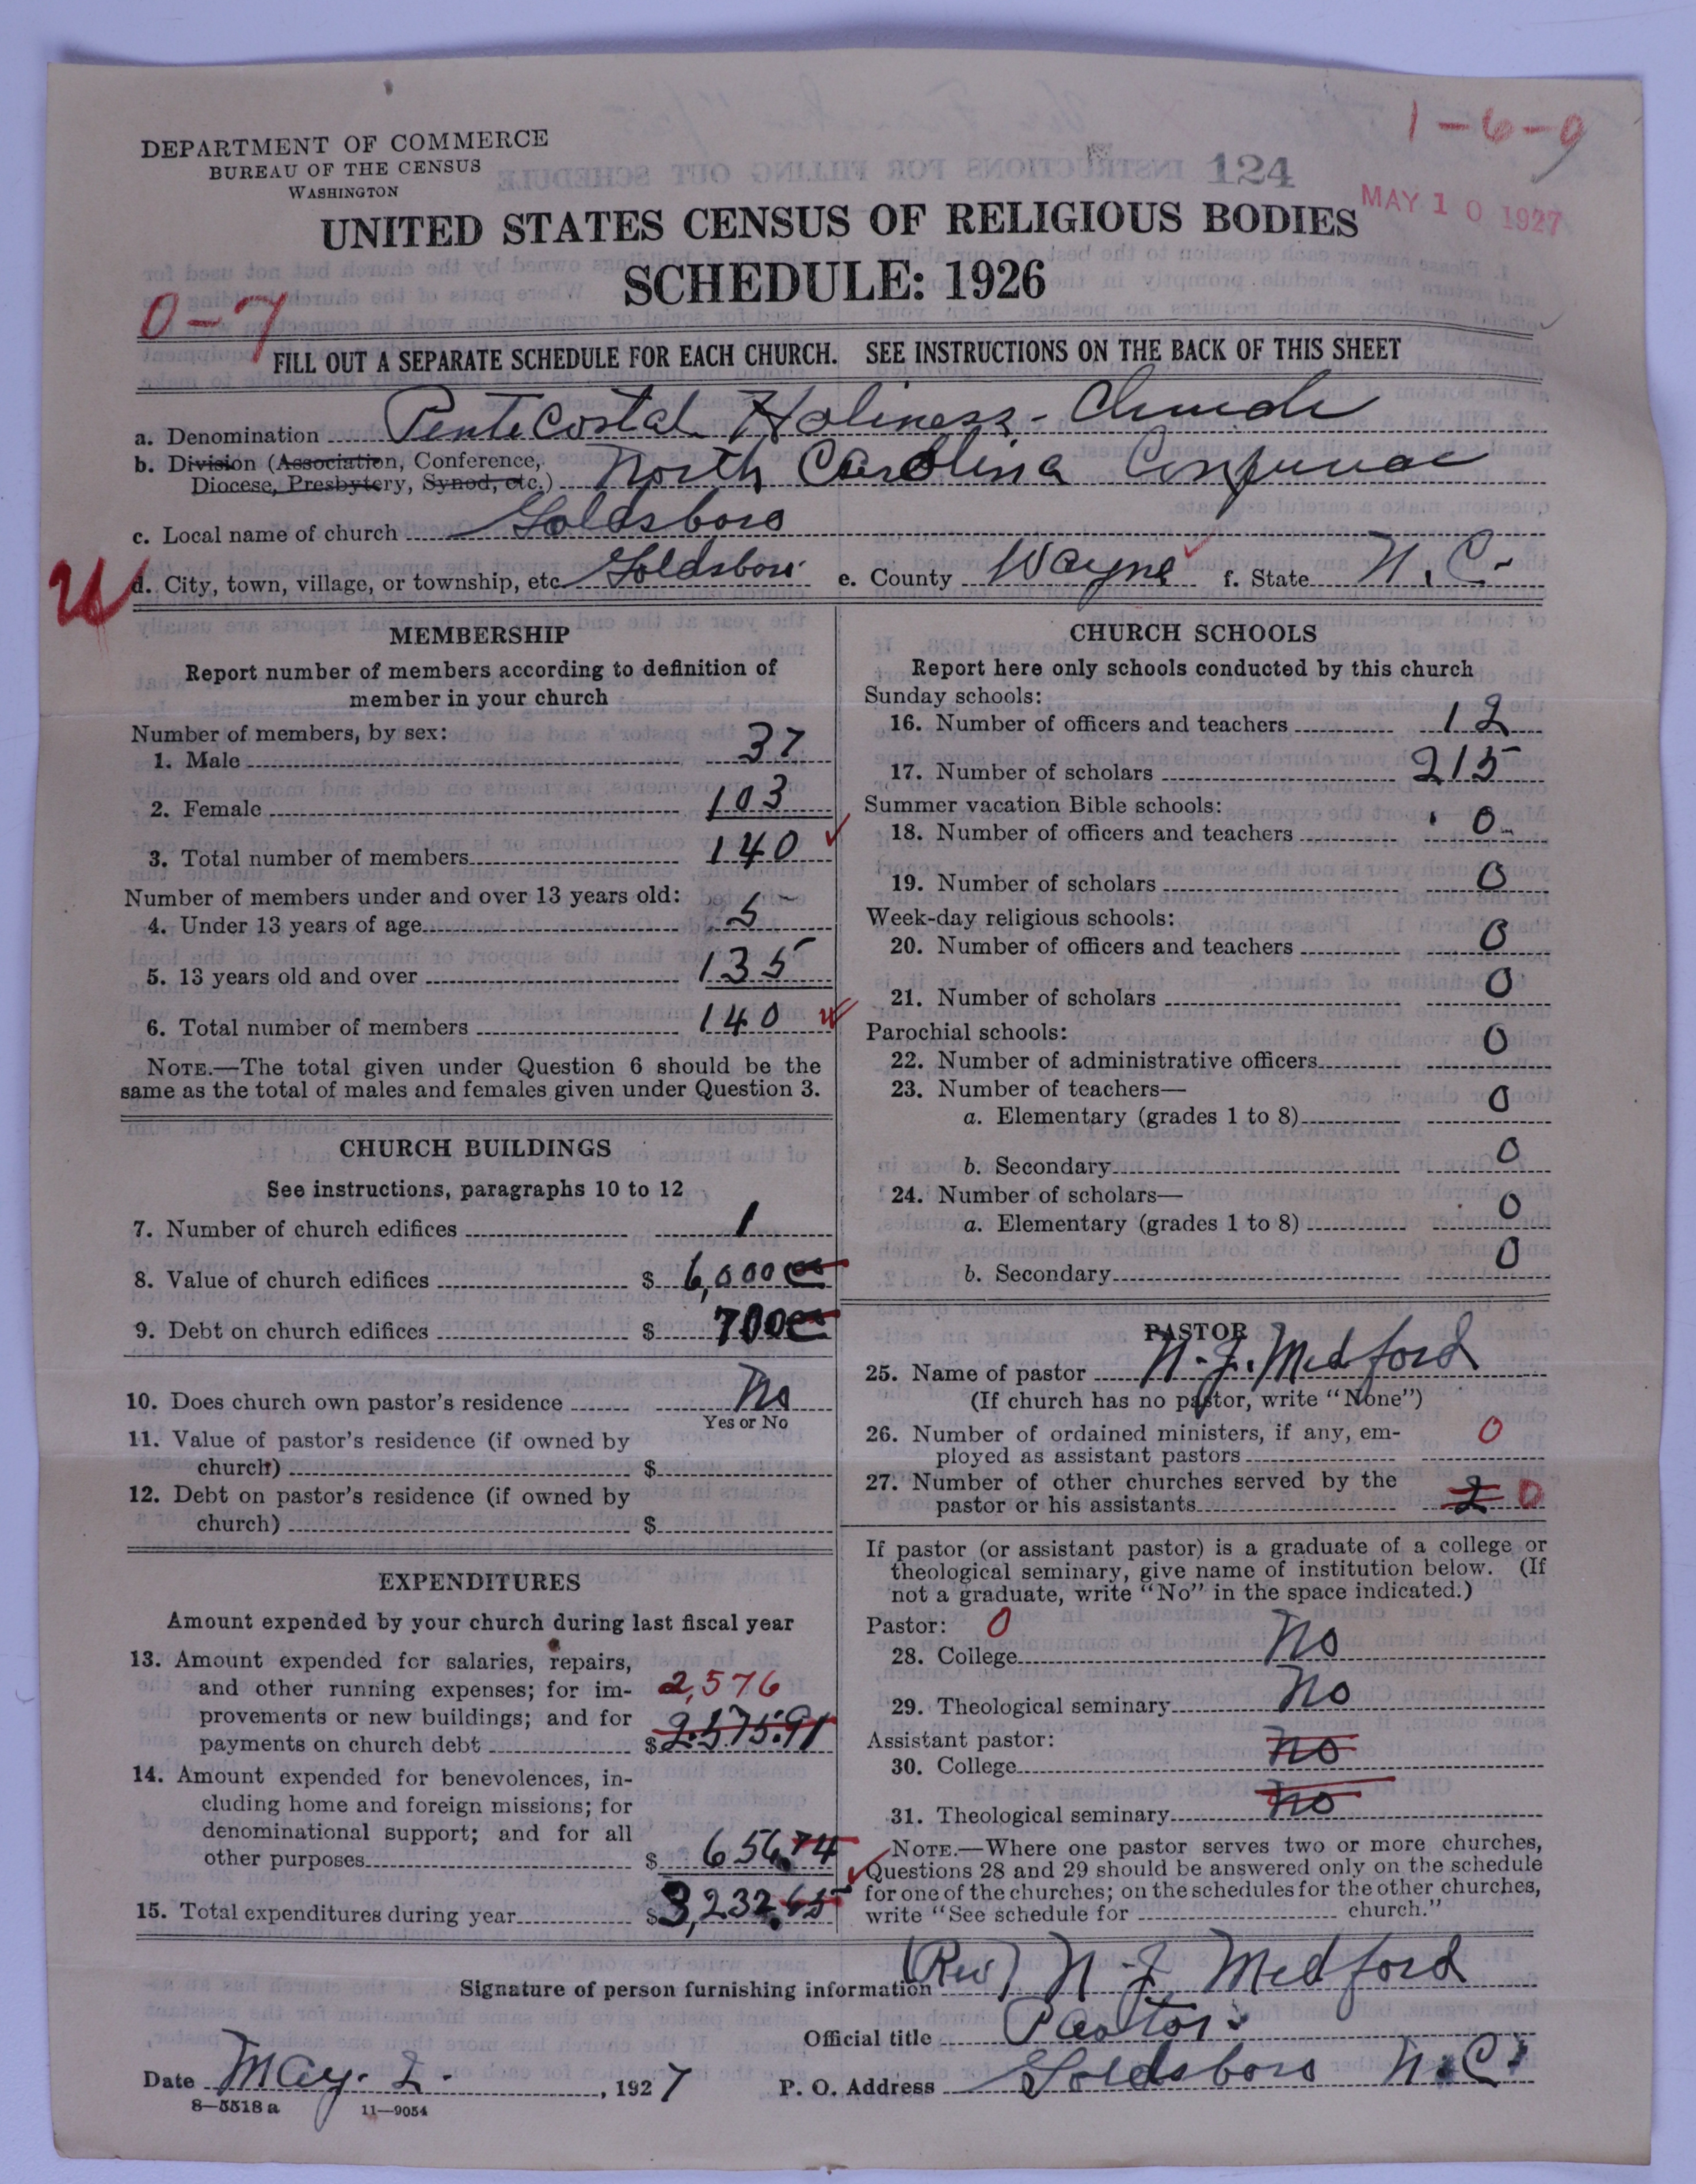 1-6-9
DEPARTMENT OF COMMERCE
BUREAU OF THE CENSUS
WASHINGTON
124
MAY 10 1927
UNITED STATES CENSUS OF RELIGIOUS BODIES
SCHEDULE: 1926
0-7
FILL OUT A SEPARATE SCHEDULE FOR EACH CHURCH. SEE INSTRUCTIONS ON THE BACK OF THIS SHEET
a. Denomination PenteCostal Holiness-Church
b. Division (Association, Conference, Diocese, Presbytery, Synod, etc.) North Carolina Conference
c. Local name of church Goldsboro
U
d. City, town, village, or township, etc. Goldsboro e. County Wayne f. State N. C.
MEMBERSHIP
Report number of members according to definition of
member in your church
Number of members, by sex:
1. Male 37
2. Female 103
3. Total number of members 140
Number of members under and over 13 years old:
4. Under 13 years of age 5
5. 13 years old and over 135
6. Total number of members 140
NOTE.—The total given under Question 6 should be the
same as the total of males and females given under Question 3.
CHURCH BUILDINGS
See instructions, paragraphs 10 to 12
7. Number of church edifices 1
8. Value of church edifices $ 6,000 00
9. Debt on church edifices $ 700
10. Does church own pastor's residence No
Yes or No
11. Value of pastor's residence (if owned by
church) $
12. Debt on pastor's residence (if owned by
church) $
EXPENDITURES
Amount expended by your church during last fiscal year
13. Amount expended for salaries, repairs,
and other running expenses; for im- 2,576
provements or new buildings; and for
payments on church debt $ 2575.91
14. Amount expended for benevolences, in-
cluding home and foreign missions; for
denominational support; and for all
other purposes $ 656.74
15. Total expenditures during year $ 3,232.65
CHURCH SCHOOLS
Report here only schools conducted by this church
Sunday schools:
16. Number of officers and teachers 12
17. Number of scholars 215
Summer vacation Bible schools:
18. Number of officers and teachers 0
19. Number of scholars 0
Week-day religious schools:
20. Number of officers and teachers 0
21. Number of scholars 0
Parochial schools:
22. Number of administrative officers 0
23. Number of teachers—
a. Elementary (grades 1 to 8) 0
b. Secondary 0
24. Number of scholars—
a. Elementary (grades 1 to 8) 0
b. Secondary 0
PASTOR
25. Name of pastor N. J. Medford
(If church has no pastor, write "None")
26. Number of ordained ministers, if any, em-
ployed as assistant pastors 0
27. Number of other churches served by the
pastor or his assistants 2 0
If pastor (or assistant pastor) is a graduate of a college or
theological seminary, give name of institution below. (If
not a graduate, write "No" in the space indicated.)
Pastor: 0
28. College No
29. Theological seminary No
Assistant pastor:
30. College No
31. Theological seminary No
NOTE.—Where one pastor serves two or more churches,
Questions 28 and 29 should be answered only on the schedule
for one of the churches; on the schedules for the other churches,
write "See schedule for church."
Signature of person furnishing information (Rev) N. J. Medford
Official title Pastor
Date May. 2. , 1927 P. O. Address Goldsboro N.C.
8—5518 a 11—9054